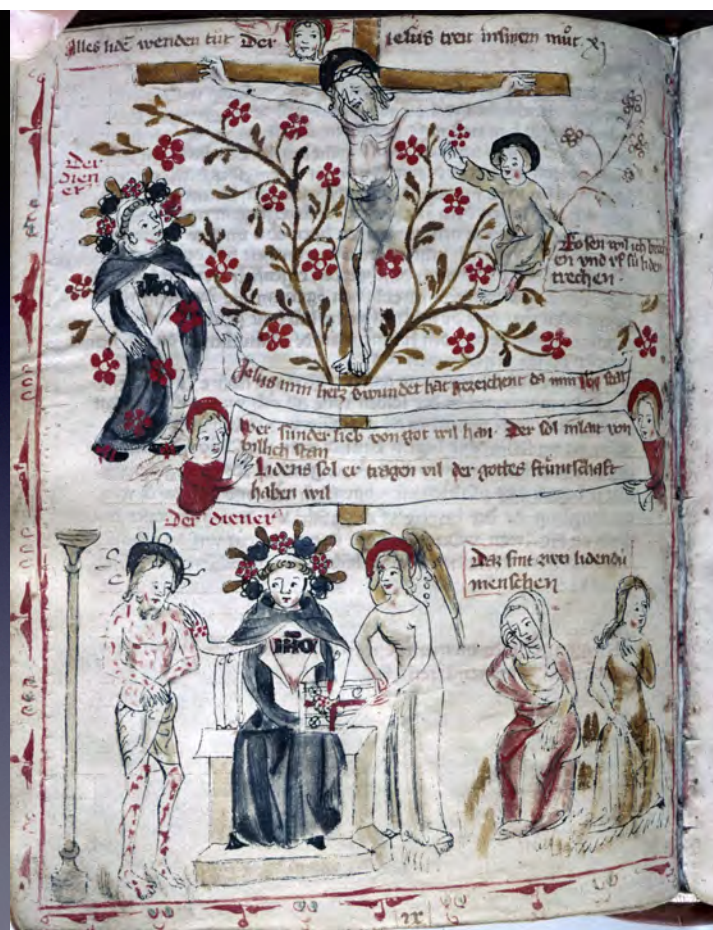 Alles lidē wenden tůt Der Iesus treit in sinem můt xj
Der
dien
er
Rosen wil ich brech
en vnd vf sú liden
trechen .
Jesus min herz v̓wundet hat gezeichent da min stat
Wer sunder lieb von got wil han Der sol inlait von
billich stan
Lidens sol er tragen vil der gottes frúntschaft
haben wil
Der diener
IHC
Daz sint zwei lidendú
menschen
ix